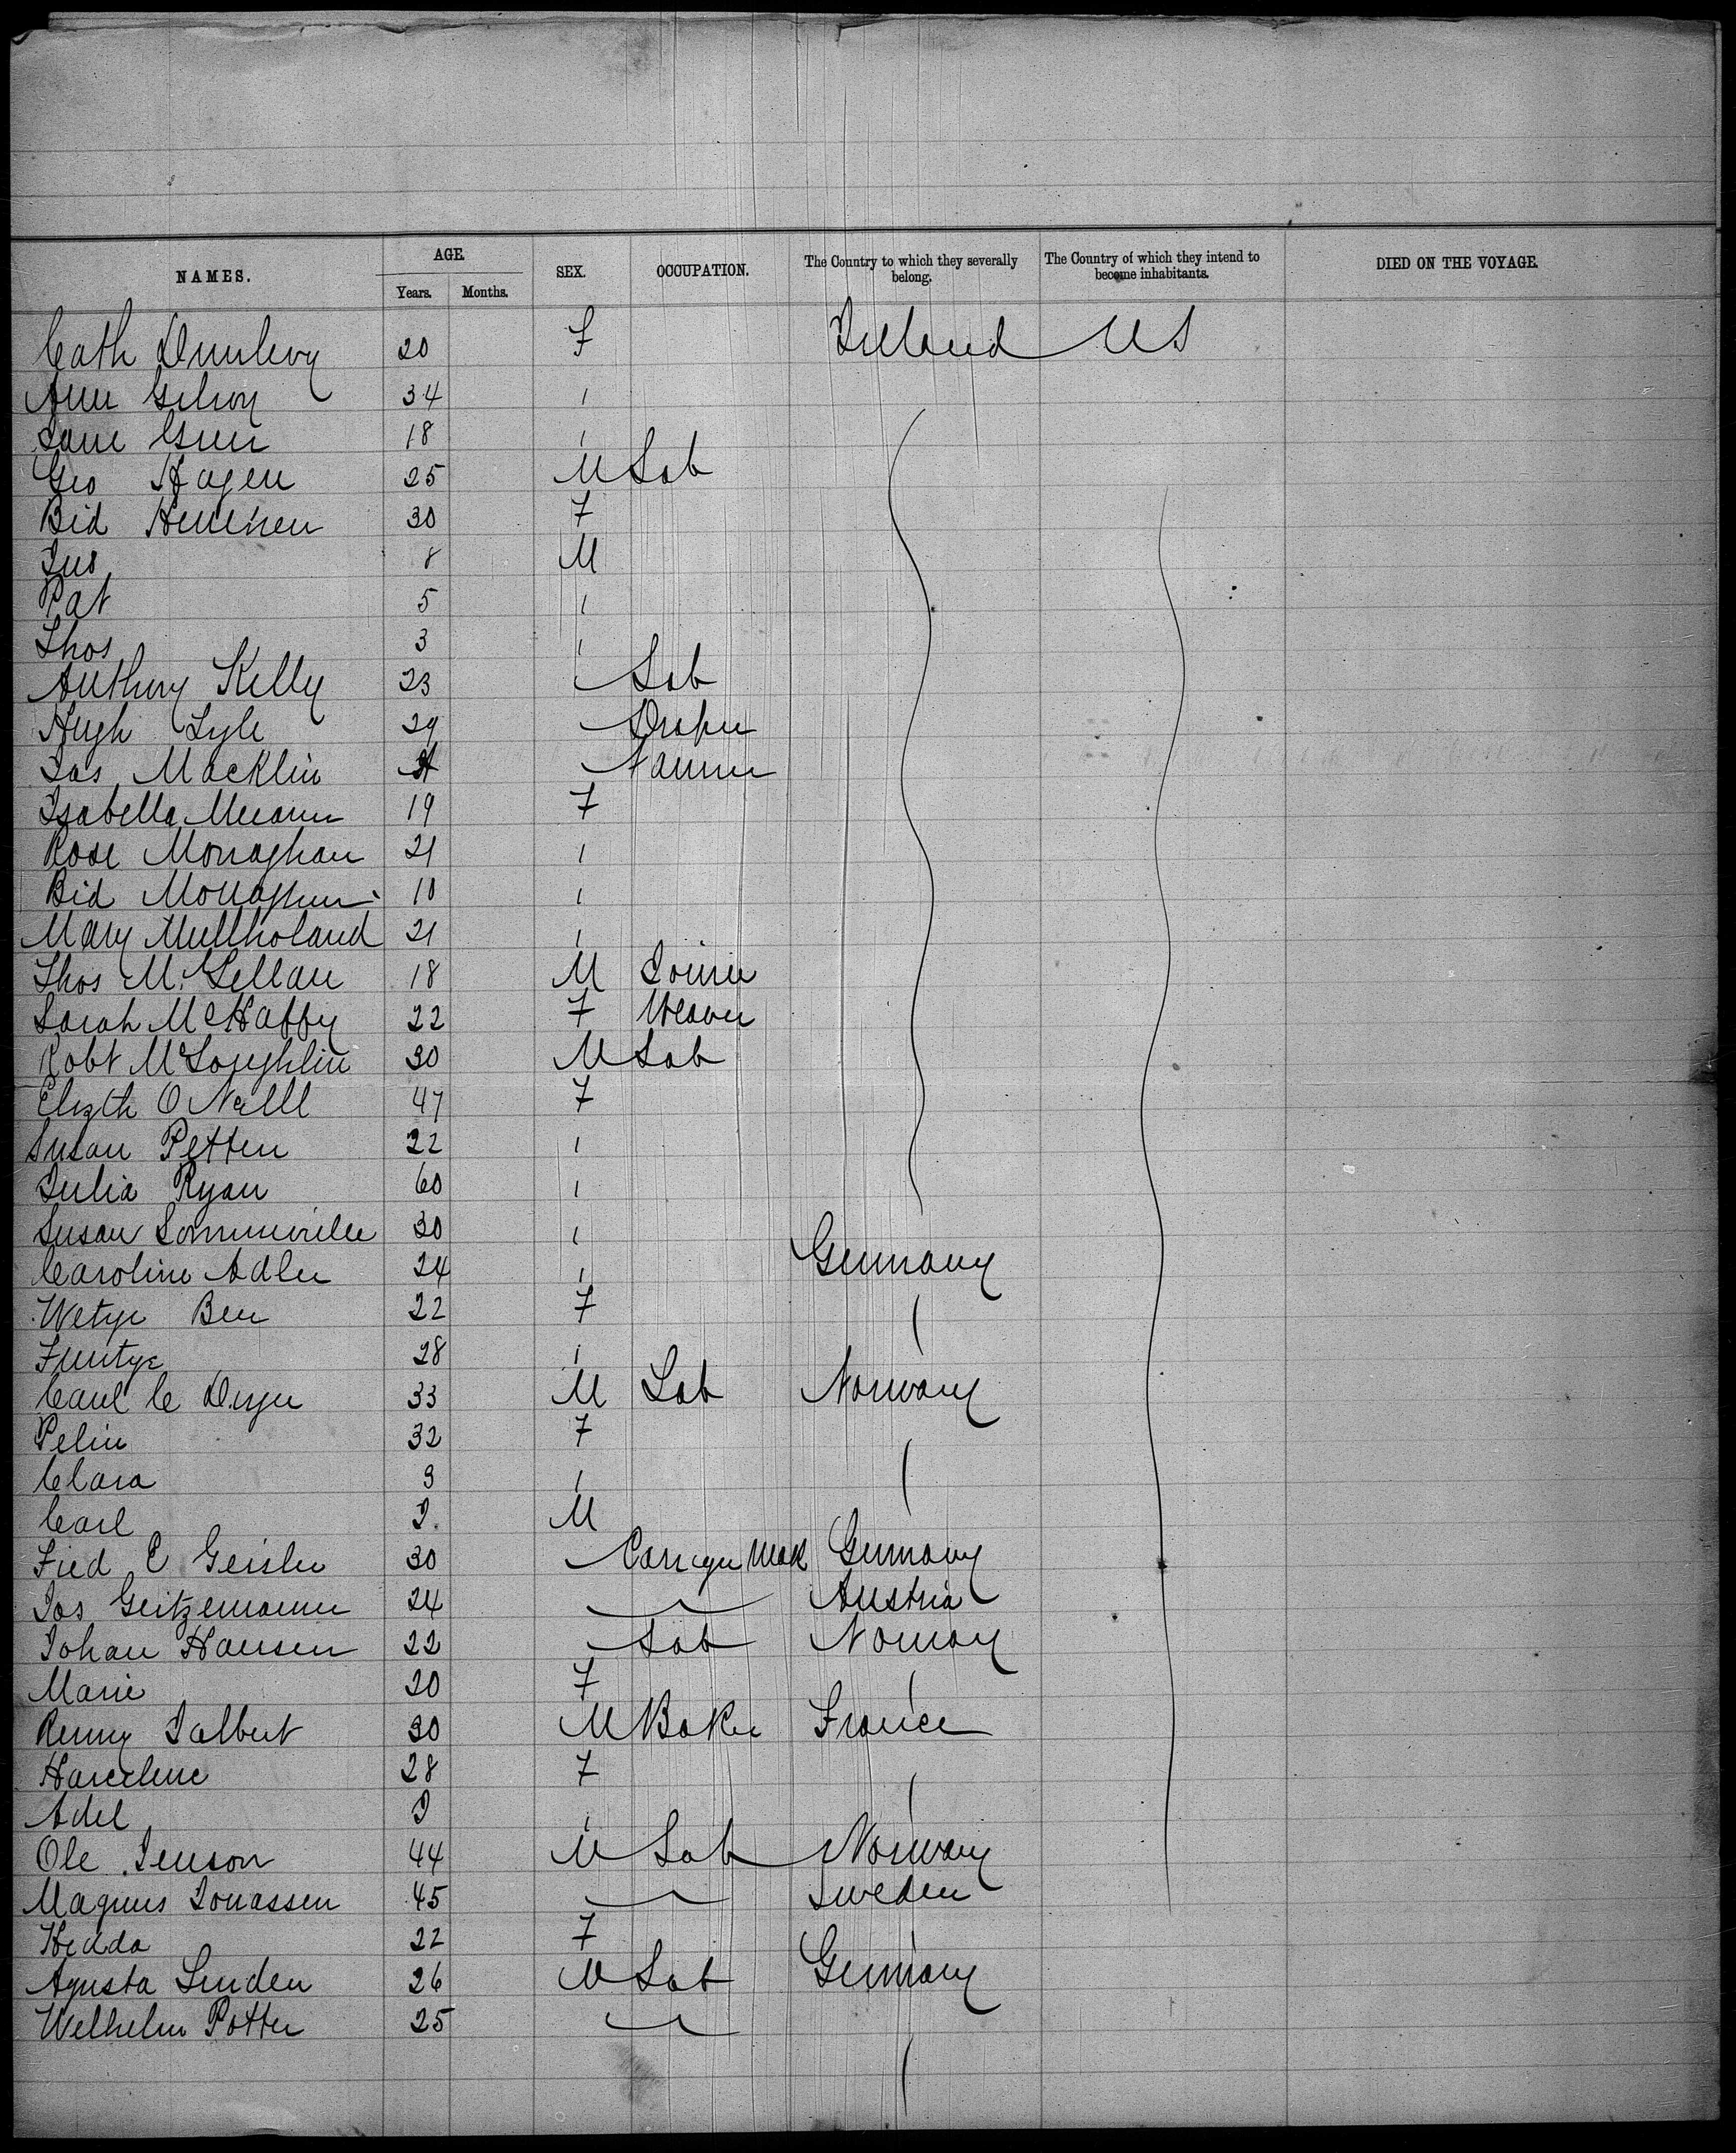 NAMES. AGE. SEX. OCCUPATION. The Country to which they severally belong. The Country of which they intend to become inhabitants. DIED ON THE VOYAGE.
Years. Months.
Cath Dunlevy 20 F Ireland US
Ann Gilroy 34 "
Jane Greer 18 "
Geo Hagen 25 M Lab
Bid 30 F
Jas 8 M
Pat 5 "
Thos 3 "
Anthony Kelly 23 " Lab
Hugh Lyle 29 Draper
Jas Macklin
Isabella 19 F
Rose Monaghan 21 "
Bid Monaghan 10 "
Mary Mullholand 21 "
Thos McLellan 18 M Joiner
Sarah McHaffy 22 F Weaver
Robt McLoughlin 30 M Lab
Elizth O Neill 47 F
Susan Petten 22 "
Julia Ryan 60 "
Susan Sommerville 30 "
Caroline Adler 24 " Germany
Wetye Ben 22 F
28 "
Carl C 33 M Lab Norway
32 F
Clara 3 "
Carl M
Fred C Geisler 30 Germany
Jos Geitzemann 24 Austria
Johan Hansen 22 Lab Norway
Marie 20 F
Jalbert 30 M Baker France
28 F
Adel "
Ole Jenson 44 M Lab Norway
Magnus Jonassen 45 Sweden
Hedda 22 F
Agusta Linden 26 M Lab Germany
Welhelm Potter 25